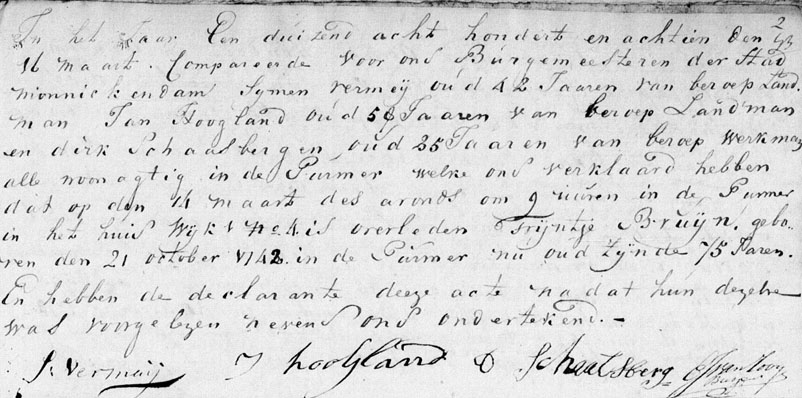 In het Jaar Een duizend acht hondert en achtien den
16 maart. Compareerde voor ons Burgemeesteren der Stad
monnickendam Symen vermeij oud 42 Jaaren van beroep Land.
man Jan Hoogland oud 58 Jaaren van beroep Landman
en dirk Schaasbergen oud 35 Jaaren van beroep werkman
alle woonagtig in de Purmer welke ons verklaard hebben
dat op den 14 maart des avonds om 9 uuren in de Purmer
in het huis Wijk 1 No 4 is overleden Trijntje Bruijn, gebo..
ren den 21 october 1742 in de Purmer nu oud zijnde 75 Jaren.
En hebben de declarante deeze acte na dat hun dezelve
was voorgelezen nevens ons ondertekend. -
S: vermeij J hoogland D Schaatsberg